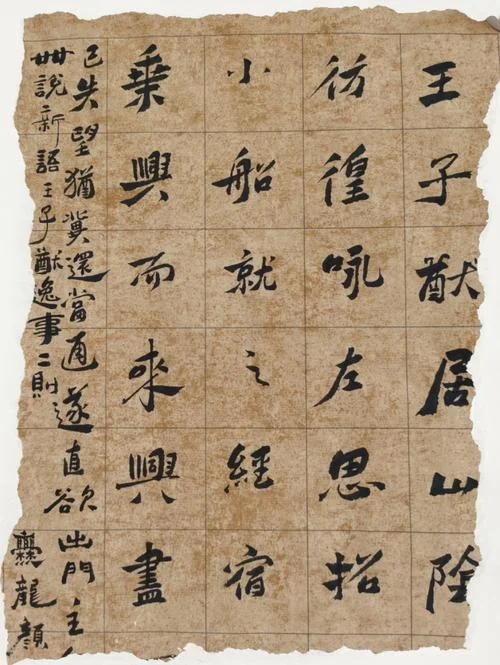 王子猷居山陰
彷徨咏左思招
小船就之經宿
乘興而來興盡
已失望猶冀還當通遂直欲出門主
丗說新語王子猷逸事二則
爨龍顏